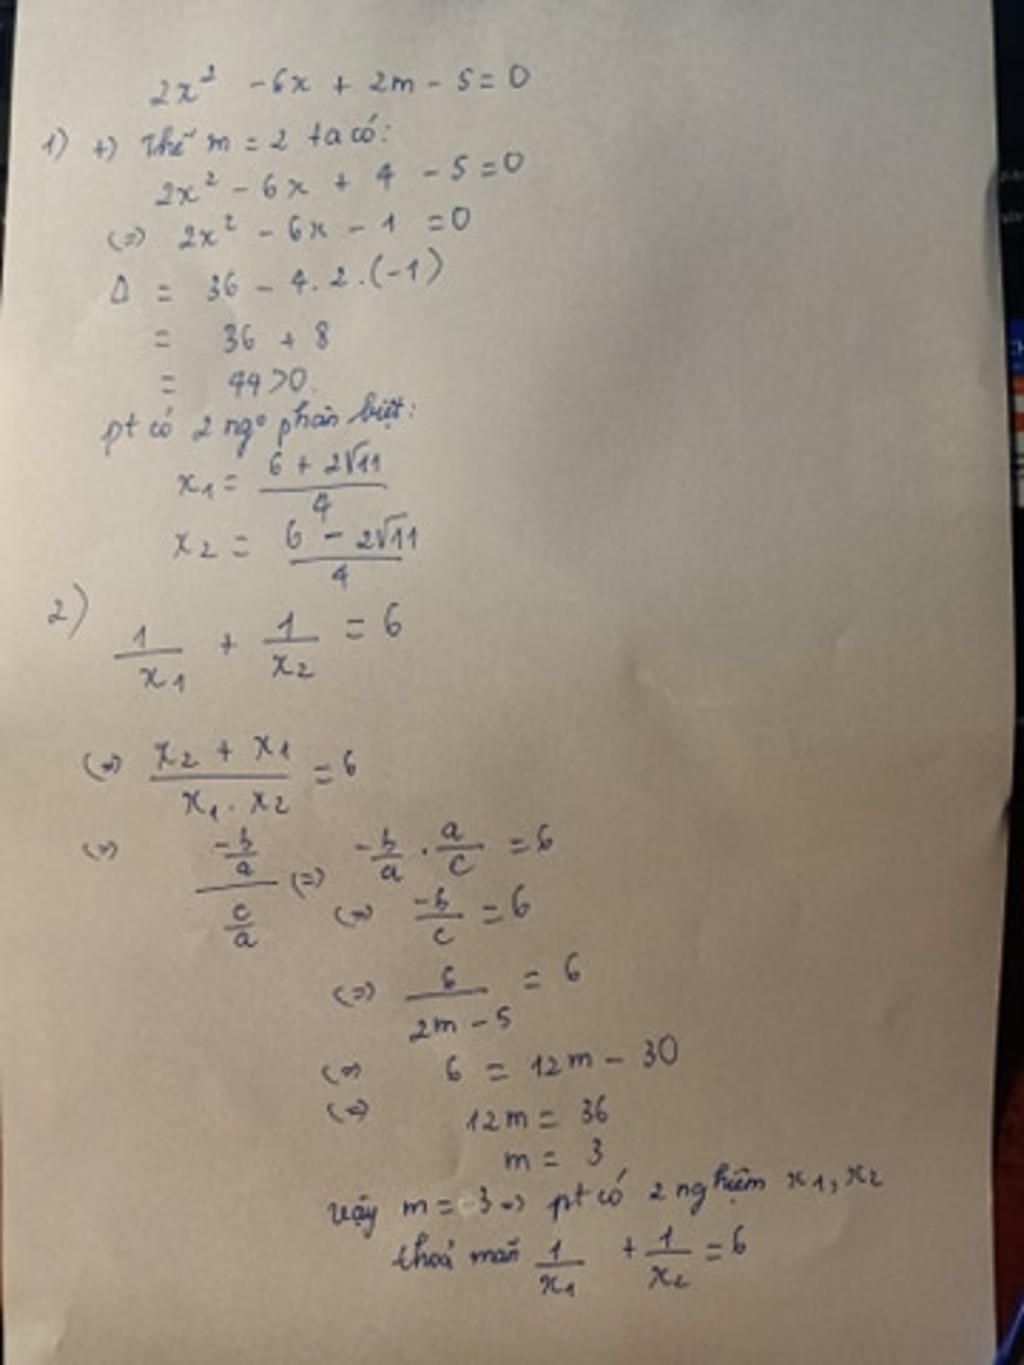 2x² - 6x + 2m - 5 = 0
1) +) Thế m = 2 ta có:
2x² - 6x + 4 - 5 = 0
(=) 2x² - 6x - 1 = 0
Δ = 36 - 4.2.(-1)
= 36 + 8
= 44 > 0.
pt có 2 ngo phân biệt:
x₁ = (6 + 2√11)/4
x₂ = (6 - 2√11)/4
2) 1/x₁ + 1/x₂ = 6
(=) (x₂ + x₁)/(x₁ . x₂) = 6
(=) (-b/a)/(c/a) (=) -b/a . a/c = 6
(=) -b/c = 6
(=) 6/(2m - 5) = 6
(=) 6 = 12m - 30
(=) 12m = 36
m = 3
vậy m = 3 => pt có 2 nghiệm x₁, x₂
thoả mãn 1/x₁ + 1/x₂ = 6